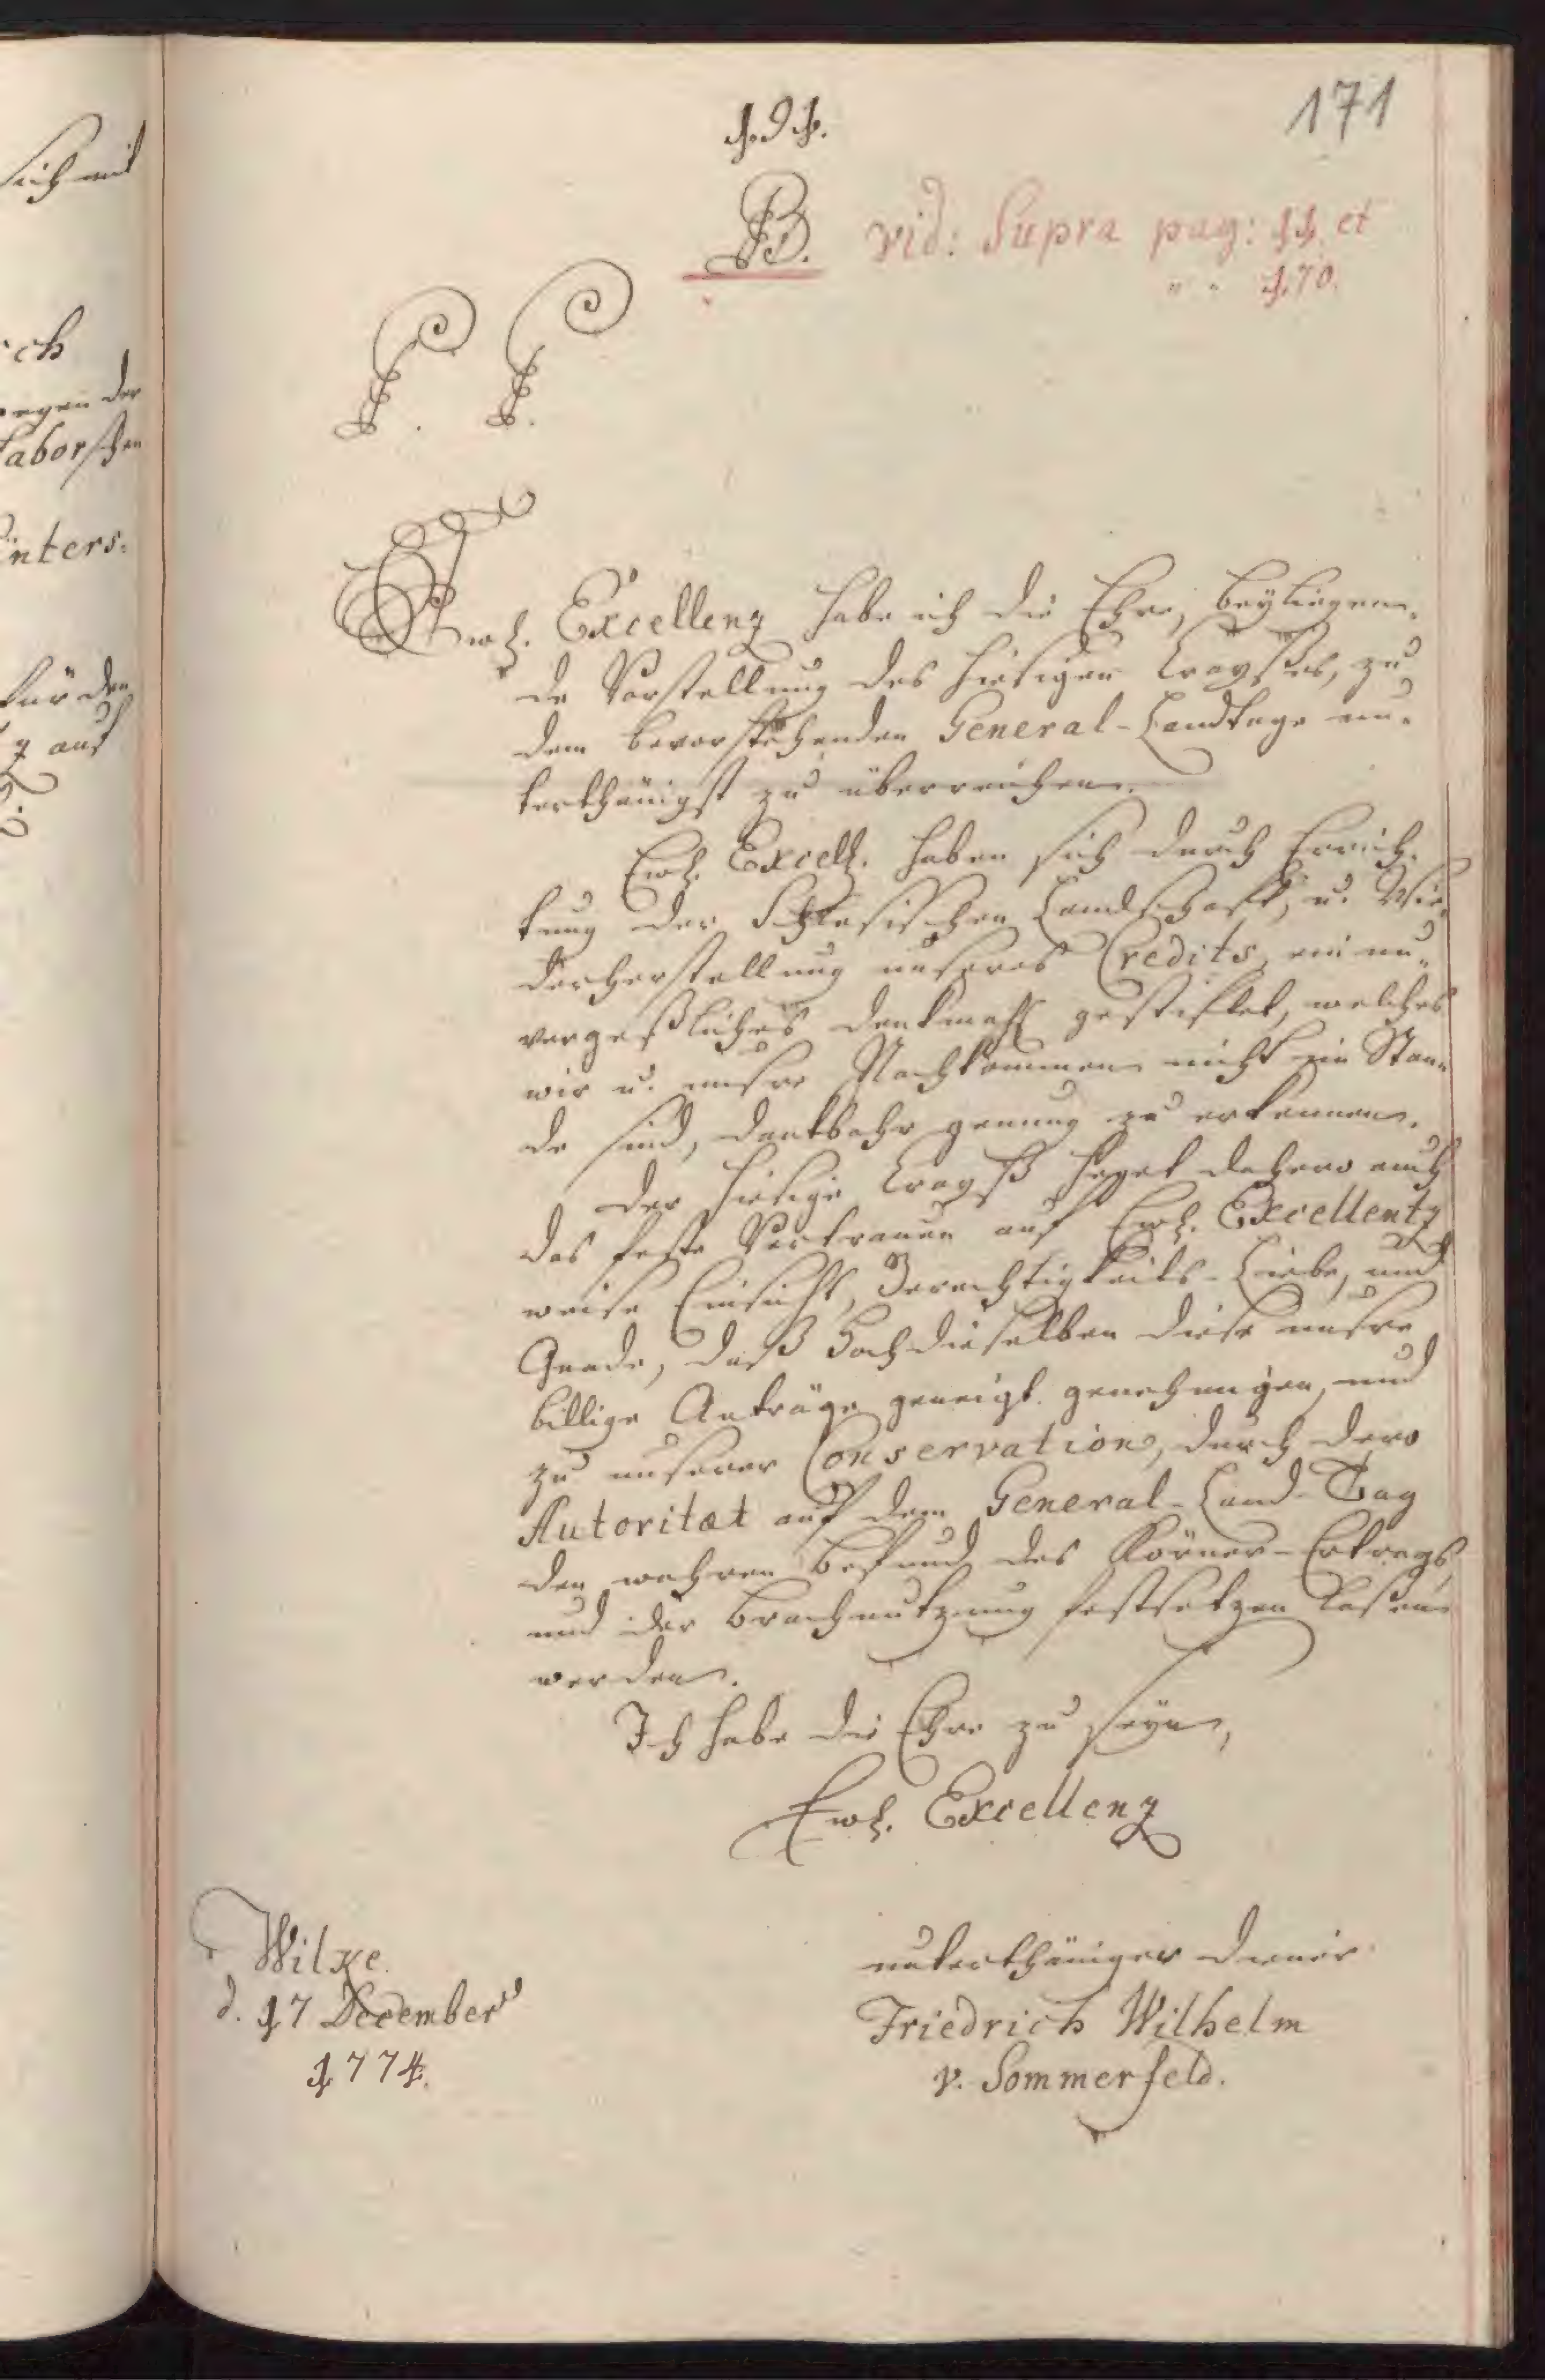 191.
171
B. vid: Supra pag: 11. et
" " 170.
P. P.
Ewh. Excellenz habe ich die Ehre, beyliegen-
de Vorstellung des hiesigen Crayßes, zu
dem bevorstehenden General-Landtage un-
terthänigst zu überreichen.
Ewh. Excell. haben sich durch Errich-
tung der Schlesischen Landschaft, u. Wie-
derherstellung unseres Credits, ein un-
vergeßliches Denkmahl gestiftet, welches
wir u. unsre Nachkommen nicht im Stan-
de sind, dankbahr genung zu erkennen.
Der hiesige Crayß heget dahero auch
das feste Vertrauen auf Ewh. Excellentz
weise Einsicht, Gerechtigkeits-Liebe, und
Gnade, daß Hochdieselben diese unsre
billige Anträge geneigt genehmigen, und
zu unserer Conservation, durch dero
Autoritæt auf dem General-Land-Tag
den wahren Befund des Körner-Ertrags,
und der Brachnutzung festsetzen laßen
werden.
Ich habe die Ehre zu seyn,
Ewh. Excellenz
Wilxe.
d. 17 December
1774.
unterthäniger Diener
Friedrich Wilhelm
v. Sommerfeld.
sich mit
ch
egen der
aborschen
nters:
für den
z auf